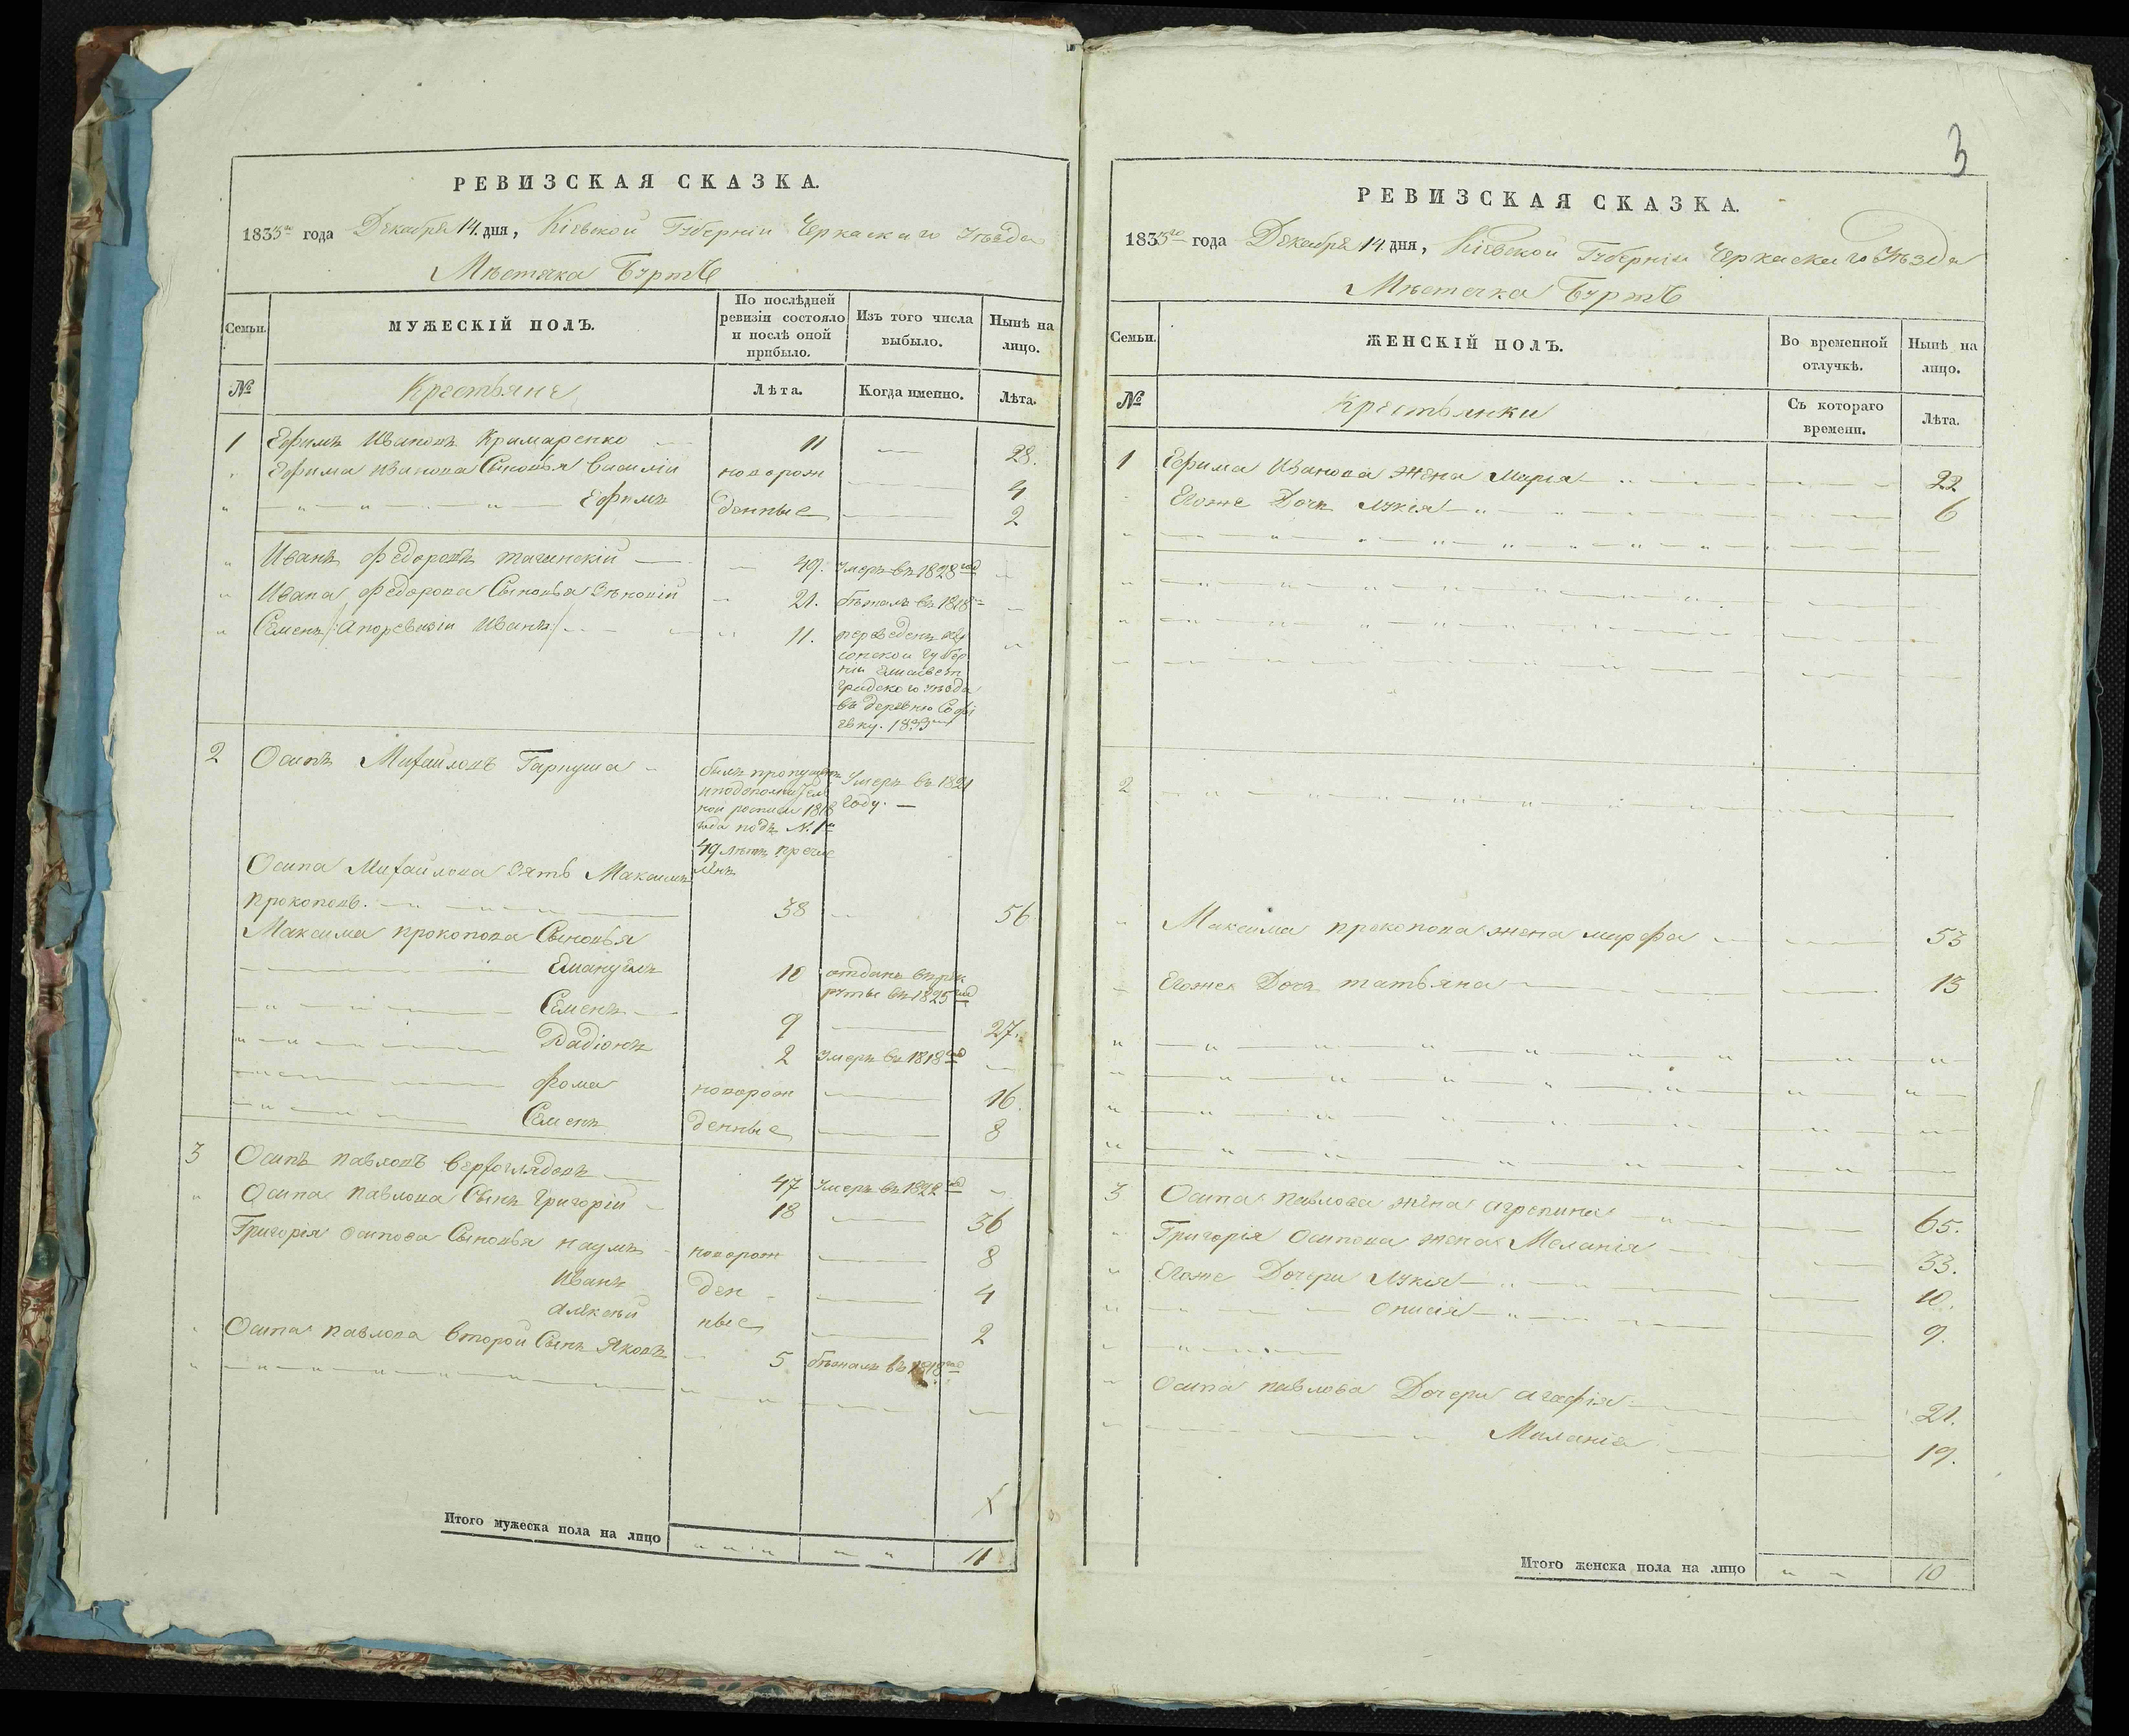 РЕВИЗСКАЯ СКАЗКА.
1833го года Декабря 14. дня, Кіевской Губерніи Черкаскаго Уѣзда
Мѣстечка Буртъ
Семьи.
МУЖЕСКІЙ ПОЛЪ.
По послѣдней ревизіи состояло и послѣ оной прибыло.
Изъ того числа выбыло.
Нынѣ на лицо.
№
Крестьяне
Лѣта.
Когда именно.
Лѣта.
1 Ефимъ Ивановъ Крамаренко 11 28.
Ефима Иванова Сыновья Василій новорож 4
Ефимъ денные 2
Иванъ Федоровъ 49. Умеръ въ 1828 год
Ивана Федорова Сыновья Зѣновій 21. бѣжалъ въ 1818
Семенъ /: А поревизіи Иванъ :/ 11. переведенъ хер
сонской губер
ніи Елисавет
градского уѣзда
въ деревню Софі
евку. 1833
2 Осипъ Михайловъ Гаркуша былъ пропущенъ Умеръ въ 1821
иподополнител году.
ной росписи 1818
года подъ №. 1м
49 лѣтъ причис
ленъ
Осипа Михайлова Зять Максимъ
прокоповъ. 38 56
Максима прокопова Сыновья
Емануилъ 10 отданъ врек
руты въ 1825 год
Семенъ 9 27.
Радіонъ 2 Умеръ въ 1818 год
фома новорож 16.
Семенъ денные 8
3 Осипъ павловъ Верхоглядовъ 47 Умеръ въ 1822 год
Осипа павлова Сынъ григорій 18 36
Григорія осипова Сыновья наумъ новорож 8
Иванъ ден 4
алексѣй ные 2
Осипа павлова второй Сынъ Яковъ 5 бѣжалъ въ 1818 год
Итого мужеска пола на лицо 11
3
РЕВИЗСКАЯ СКАЗКА.
1833го года Декабря 14. дня, Кіевской Губерніи Черкаскаго Уѣзда
Мѣстечка Буртъ
Семьи.
ЖЕНСКІЙ ПОЛЪ.
Во временной отлучкѣ.
Нынѣ на лицо.
№
Крестьянки
Съ котораго времени.
Лѣта.
1 Ефима Иванова жена Марья 22
Егоже Дочь Лукія 6
2
Максима прокопова жена марфа 53
Егоже Дочь татьяна 13
3 Осипа павлова жена агрепина 65.
Григорія Осипова жена Меланія 33.
Егоже Дочери Лукія 10.
Онисія 9.
Осипа павлова Дочери агафія 21.
Меланія 19.
Итого женска пола на лицо 10